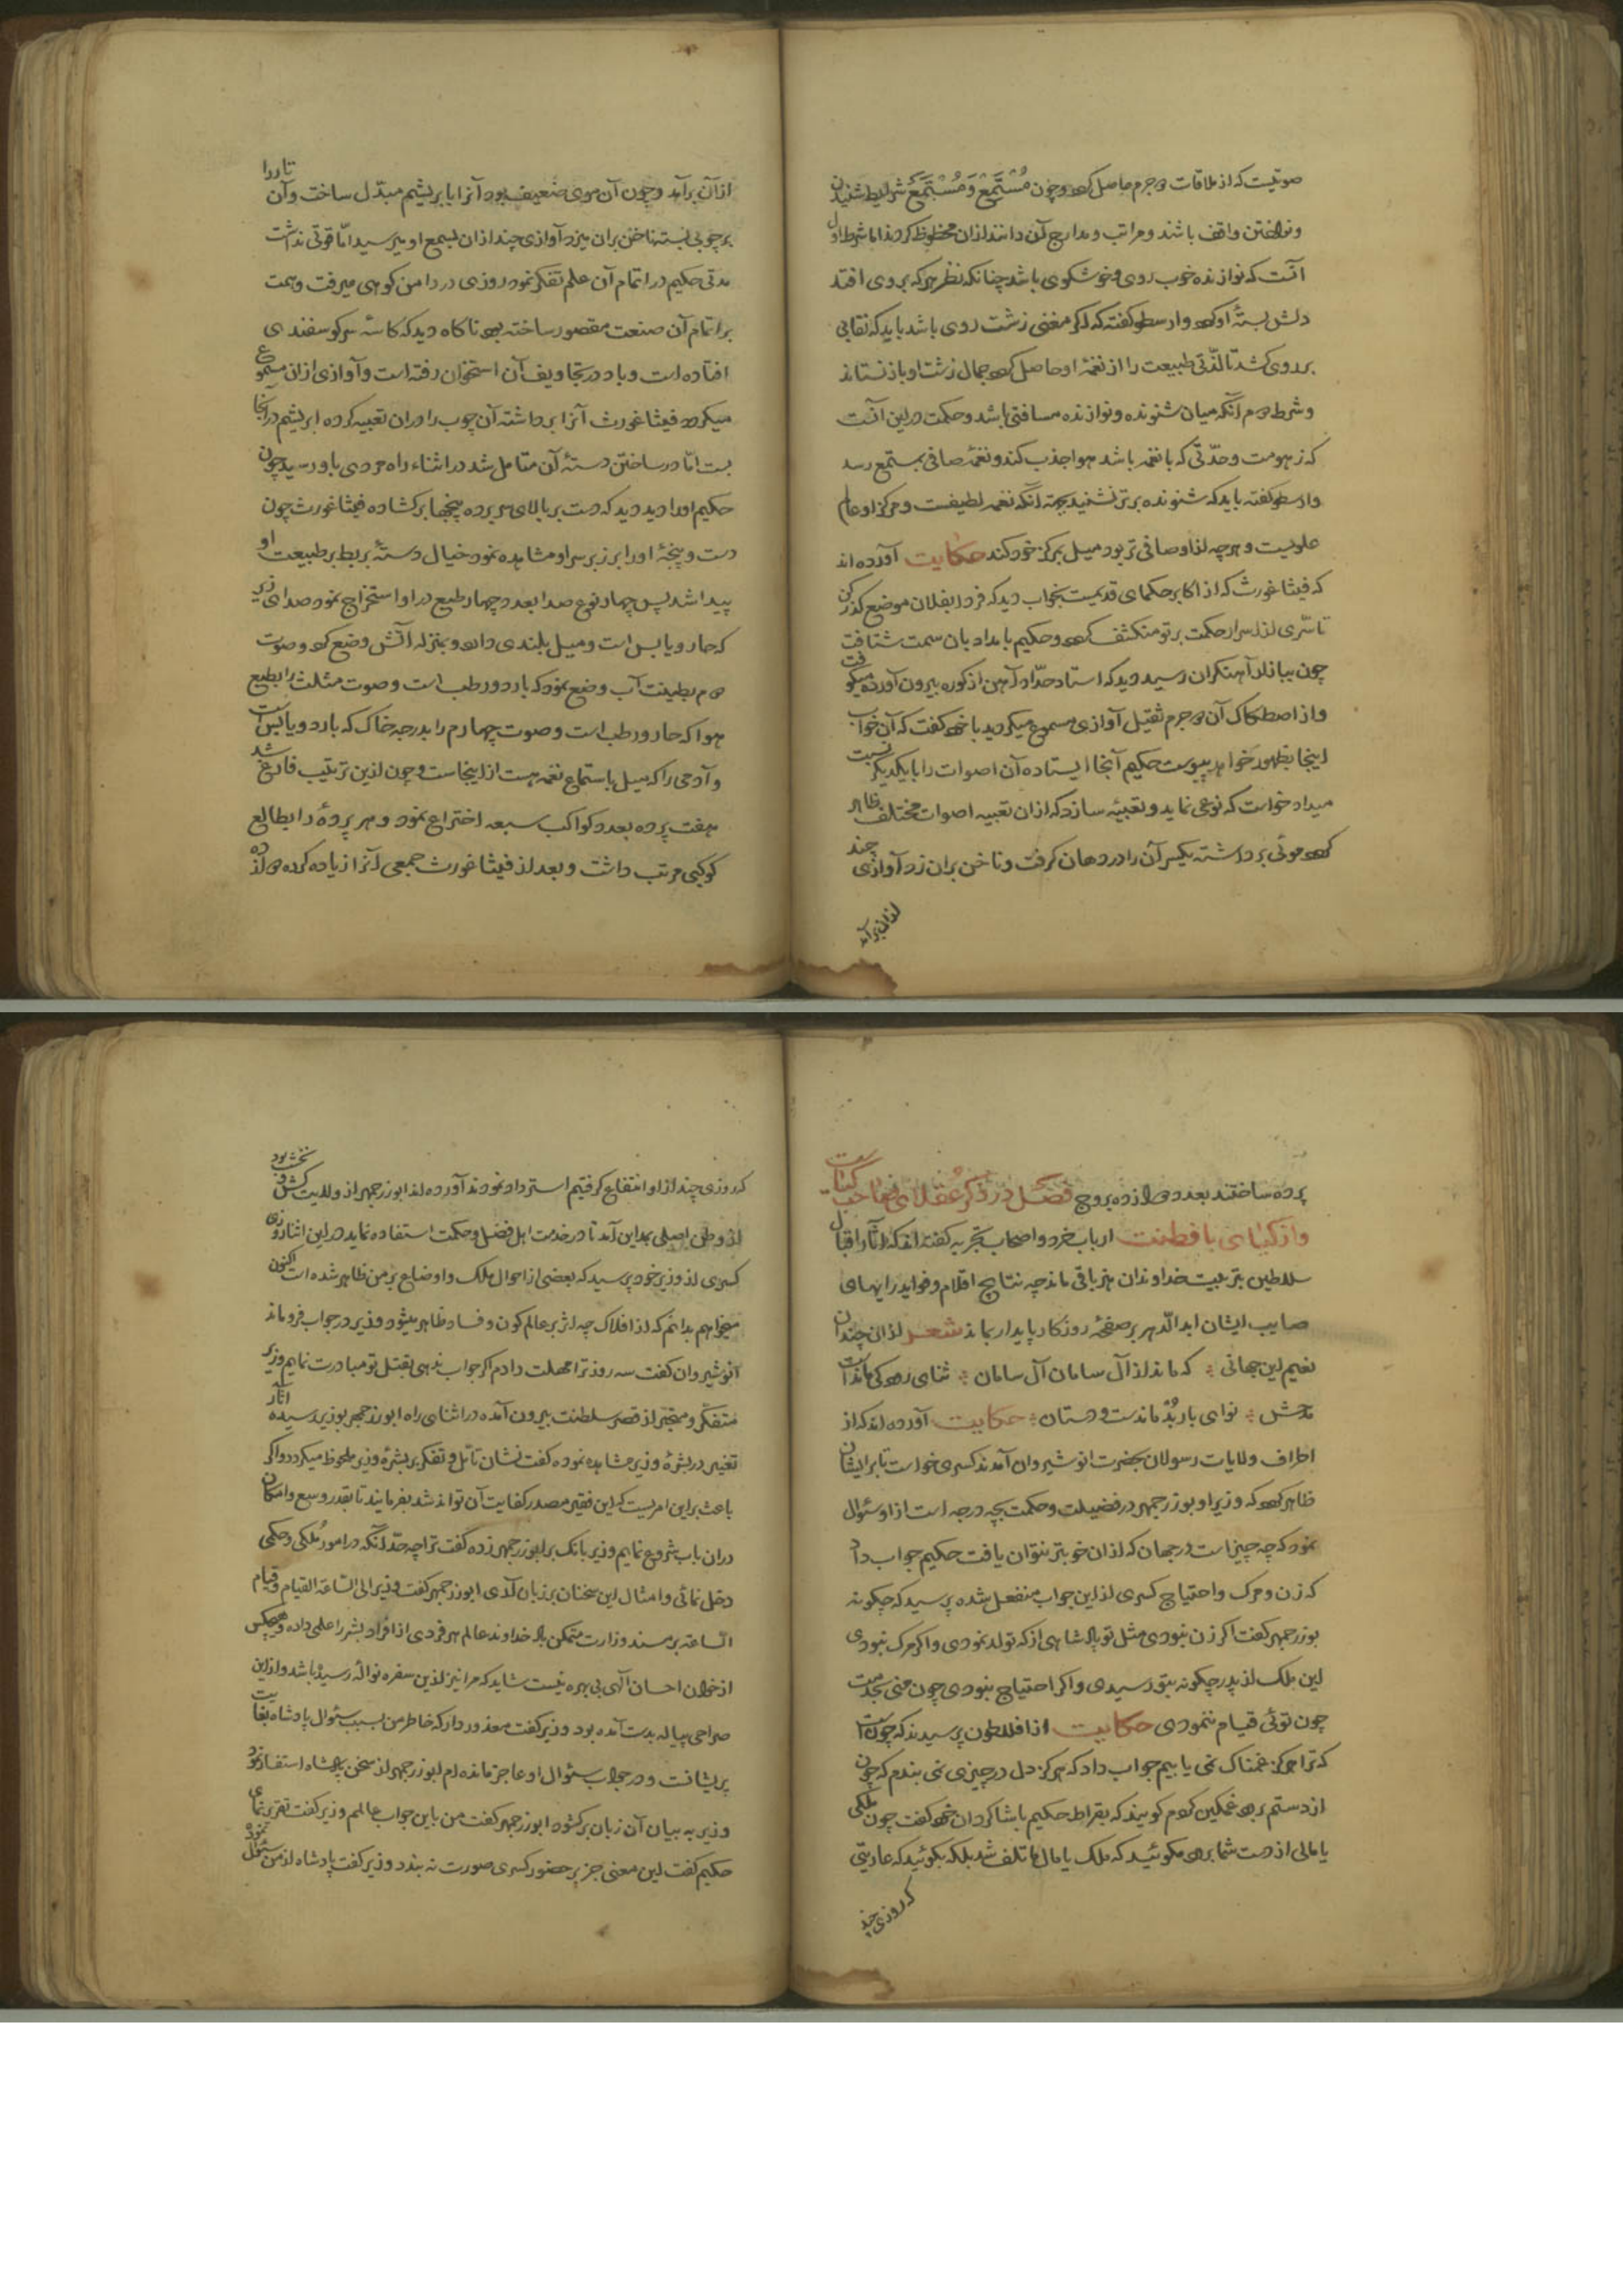 صوتیست که از ملاقات دو جرم حاصل کردد و چون مُسْتَمِعْ وَ مُسْتَمَعْ شرایط شنیدن
و نواختن واقف باشند و مراتب و مدارج آن دانند ازان محظوظ کردند اما شرط اول
آنست که نوازنده خوب روی و خوشکوی باشد چنانکه نظر هرکه بروی افتد
دلش بستهٔ او کردد و ارسطو کفته که اکر مغنی زشت روی باشد باید که نقابی
بر روی کشد تا لذّتی طبیعت را از نغمهٔ او حاصل کردد جمال زشت او باز نستاند
و شرط دوم آنکه میان شنونده و نوازنده مسافتی باشد و حکمت درین آنست
که زهومت و حدّتی که با نغمه باشد هوا جذب کند و نغمهٔ صافی بمستمع رسد
و ارسطو کفته باید که شنونده برتر نشنید بجهة آنکه نغمه لطیفست و مرکز او عالم
علویست و هرچه ازو صافی تر بود میل بمرکز خود کند حکایت آورده اند
که فیثاغورث که از اکابر حکمای قدیمست بخواب دید که فردا بفلان موضع کذر کن
تا سرّی از اسرار حکمت بر تو منکشف کردد حکیم بامداد بان سمت شتافت
چون ببازار آهنکران رسید دید که استاد حدّاد آهن از کوره بیرون آورده میکوفت
و از اصطکاک آن دو جرم ثقیل آوازی مسموع میکردید با خود کفت که آن خواب
اینجا بظهور خواهد پیوست حکیم آنجا ایستاده آن اصوات را با یکدیکر نسبت
میداد خواست که نوعی نماید و تعبیه سازد که ازان تعبیه اصوات مختلف ظاهر
کردد موئی برداشته یکسر آن را در دهان کرفت و ناخن بران زد آوازی چند
ازان برآمد
ازان برآمد و چون آن موی ضعیف بود آنرا بابریشم مبدّل ساخت و آن تار را
بر چوبی بسته ناخن بران میزد آوازی چند ازان بسمع او میرسید امّا قوتی نداشت
مدتی حکیم در اتمام آن علم تفکر نمود روزی در دامن کوهی میرفت و همت
بر اتمام آن صنعت مقصور ساخته بود ناکاه دید که کاسهٔ سر کوسفندی
افتاده است و باد در تجاویف آن استخوان رفته است و آوازی ازان مسموع
میکردد فیثاغورث آنرا برداشته آن چوب را دران تعبیه کرده ابریشم درآنجا
بست امّا در ساختن دستهٔ آن متامل شد در اثناء راه مردی باو رسید چون
حکیم او را دید دید که دست بر بالای سر برده پنجها بر کشاده فیثاغورث چون
دست و پنجهٔ او را بر زبر سر او مشاهده نمود خیال دستهٔ بربط بر طبیعت او
پیدا شد پس چهار نوع صدا بعدد چهار طبع در او استخراج نمود صدای زیر
که حار و یابس است و میل بلندی دارد و بمنزله آتش وضع کرد و صوت
دوم بطینت آب وضع نمود که بارد و رطب است و صوت مثلث را بطبع
هوا که حار و رطب است و صوت چهارم را بدرجه خاک که بارد و یابس است
و آدمی را که میل باستماع نغمه هست ازاینجاست و چون ازین ترتیب فارغ شد
هفت پرده بعدد کواکب سبعه اختراع نمود و هر پردهٔ را بطالع
کوکبی مرتب داشت و بعد از فیثاغورث جمعی آنرا زیاده کرده دوازده
پرده ساختند بعدد دوازده بروج فصل در ذکر عقلای صاحب کیاست
و ازکیای با فطنت ارباب خرد و اصحاب تجربه کفته اند که آثار اقبال
سلاطین بتربیت خداوندان هنر باقی ماند چه نتایج اقلام و فواید رایهای
صایب ایشان ابد الدّهر بر صفحهٔ روزکار پایدار بماند شعر ازان چندان
نعیم این جهانی ⁘ که ماند از آل سامان آل سامان ⁘ ثنای رودکی ماندست
مدحش ⁘ نوای باربُد ماندست و دستان ⁘ حکایت آورده اند که از
اطراف ولایات رسولان بحضرت انوشیروان آمدند کسری خواست تا بر ایشان
ظاهر کردد که وزیر او بوزرجمهر در فضیلت و حکمت بچه درجه است ازو سئوال
نمود که چه چیز است در جهان که ازان خوبتر نتوان یافت حکیم جواب داد
که زن و مرک و احتیاج کسری ازین جواب منفعل شده پرسید که چکونه
بوزرجمهر کفت اکر زن نبودی مثل تو پادشاهی از که تولد نمودی و اکر مرک نبودی
این ملک از پدر چکونه بتو رسیدی و اکر احتیاج نبودی چون منی بخدمت
چون توئی قیام ننمودی حکایت از افلاطون پرسیدند که چونست
که ترا هرکز غمناک نمی یابیم جواب داد که هرکز دل در چیزی نمی بندم که چون
از دستم برود غمکین کردم کویند که بقراط حکیم با شاکردان خود کفت چون ملکی
یا مالی از دست شما برود مکوئید که ملک یا مال ما تلف شد بلکه بکوئید که عاریتی
که روزی چند
که روزی چند ازو انتفاع کرفتیم استرداد نمودند آورده اند ابوزرجمهر از ولایت کش و نخشب بود
از وطن اصلی بمداین آمد تا در خدمت اهل فضل و حکمت استفاده نماید درین اثنا روزی
کسری از وزیر خود پرسید که بعضی از احوال ملک و اوضاع بر من ظاهر شده است اکنون
میخواهم بدانم که از افلاک چه اثر بر عالم کون و فساد ظاهر میشود وزیر در جواب فرو ماند
انوشیروان کفت سه روز ترا مهلت دادم اکر جواب ندهی بقتل تو مبادرت نمایم وزیر
متفکر و متحیر از قصر سلطنت بیرون آمده در اثنای راه ابوزرجمهر بوزیر رسیده آثار
تغیر در بشرهٔ وزیر مشاهده نموده کفت نشان تامّل و تفکر بر بشرهٔ وزیر ملحوظ میکردد و اکر
باعث بر این امریست که این فقیر مصدر کفایت آن تواند شد بفرمایند تا بقدر وسع و امکان
دران باب شروع نمایم وزیر بانک بر ابوزرجمهر زده کفت ترا چه حدّ آنکه در امور مُلکی و حکمی
دخل نمائی و امثال این سخنان بر زبان آری ابوزرجمهر کفت وزیر الی السّاعة القیام و قیام
السّاعة بر مسند وزارت متمکن باد خداوند عالم هر فردی از افراد بشر را علمی داده و هیچکس
از خوان احسان آلهی بی بهره نیست شاید که مرا نیز ازین سفره نوالهٔ رسیده باشد و ازین
صراحی پیاله بدست آمده بود وزیر کفت معذور دار که خاطر من بسبب سئوال پادشاه بغایت
پریشانست و در جواب سئوال او عاجز مانده ام ابوزرجمهر از سخن پادشاه استفسار نمود
وزیر به بیان آن زبان بر کشود ابوزرجمهر کفت من باین جواب عالمم وزیر کفت تقریر نمای
حکیم کفت این معنی جز بر حضور کسری صورت نه بندد وزیر کفت پادشاه از من سئوال نمود